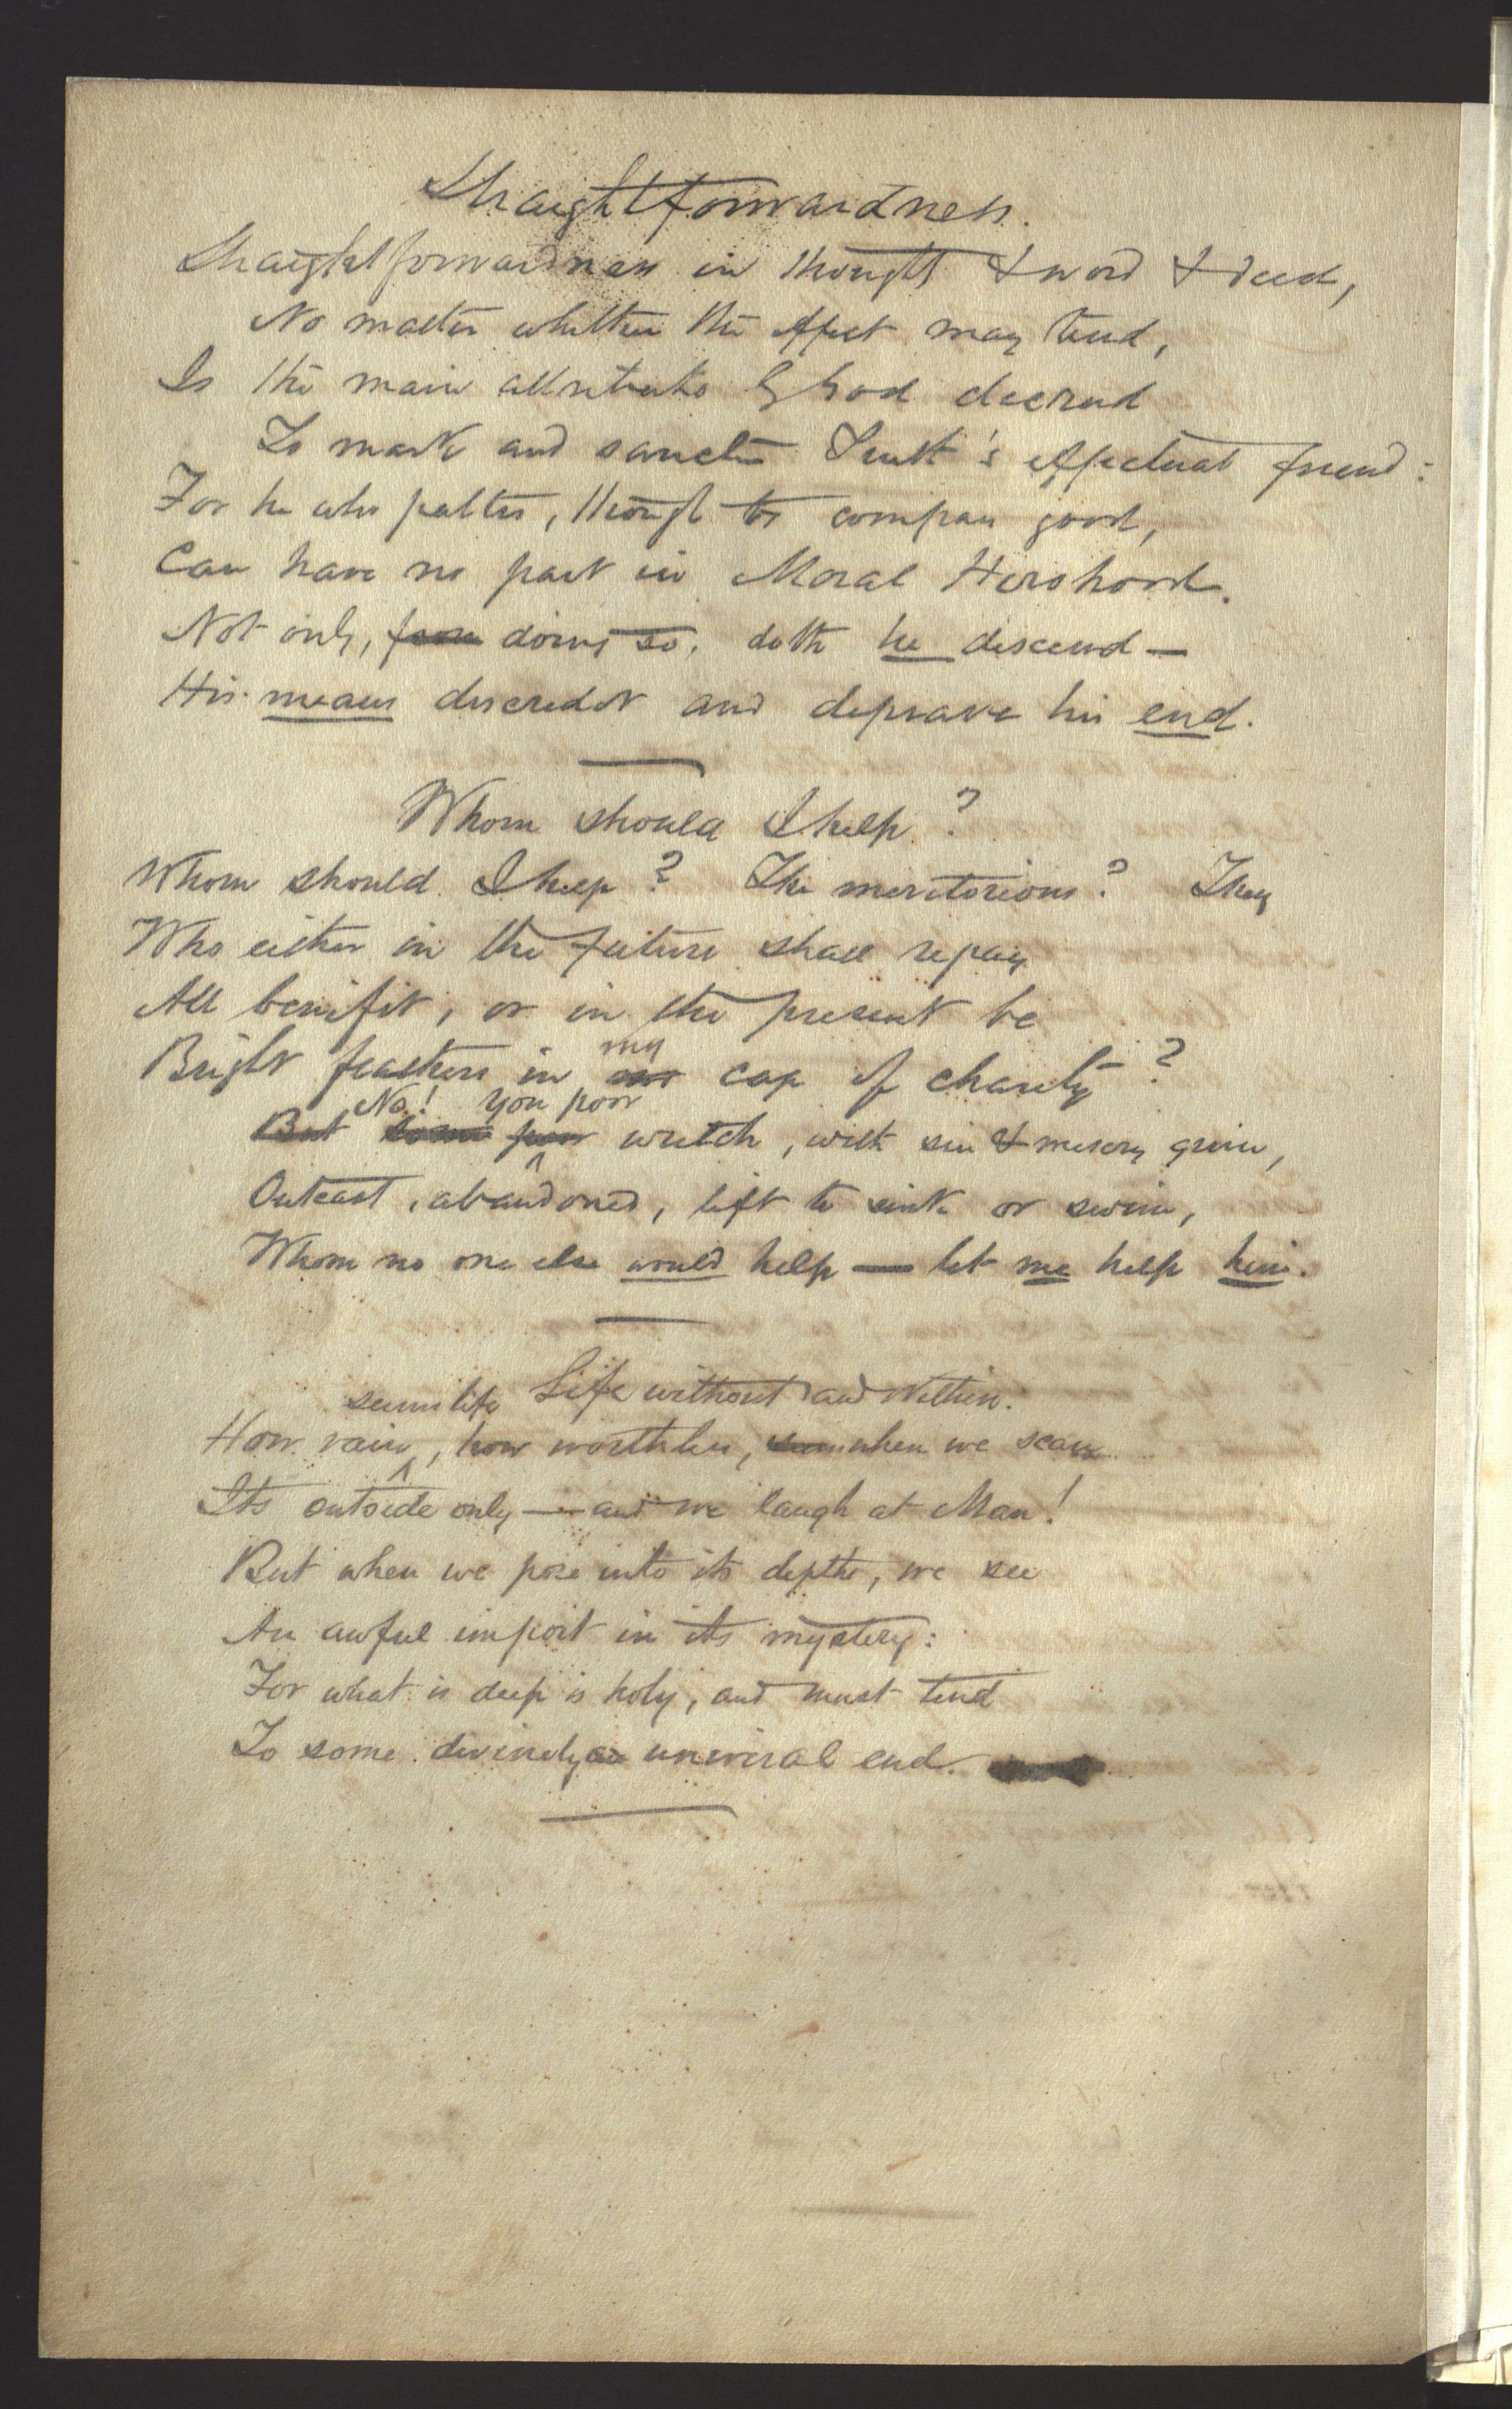 Straightforwardness.
Straightforwardness in thought & word & deed,
No matter whither the effect may tend,
Is the main attribute by God decreed
To mark and sanctn Truth's effectual friend:
For he who palters, though to compass good,
Can have no part in Moral Herohood.
Not only, from doing so, doth he descend —
His means discredit and deprave his end.
Whom should I help?
Whom should I help? The meritorious? They
Who either in the future shall repay
All benifit, or in the present be
my
Bright feathers in our cap of charity?
No! You poor
But some poor wretch, with sin & misery grim,
Outcast, abandoned, left to sink or swim,
Whom no one else would help — let me help him.
Life without and Within.
seems life
How vain, how worthless, seems when we scan
Its outside only — and we laugh at Man!
But when we pore into its depths, we see
An awful import in its mystery:
For what is deep is holy, and must tend
To some divinely universal end.